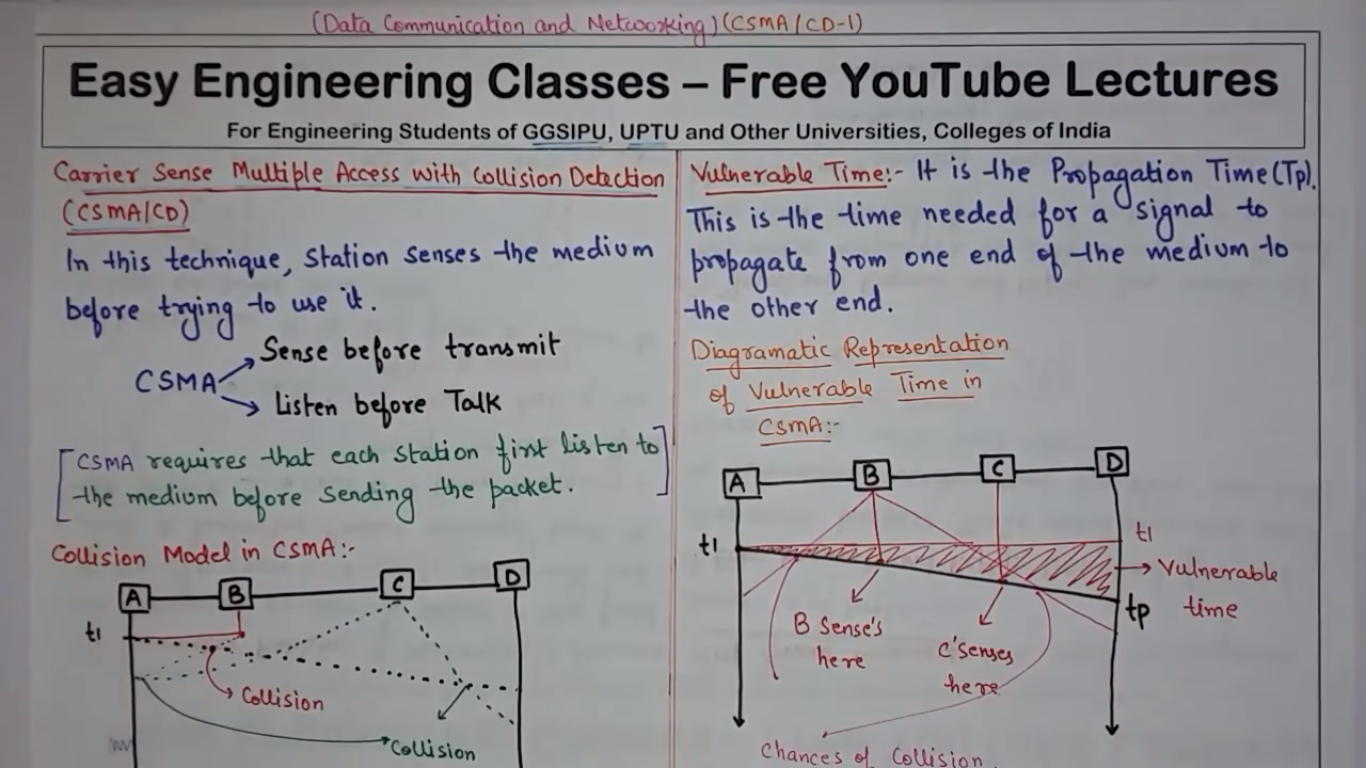 (Data Communication and Networking) (CSMA/CD-1)
Easy Engineering Classes – Free YouTube Lectures
For Engineering Students of GGSIPU, UPTU and Other Universities, Colleges of India
Carrier Sense Multiple Access with Collision Detection
(CSMA/CD)
In this technique, Station senses the medium
before trying to use it.
Sense before transmit
CSMA
Listen before Talk
[CSMA requires that each station first listen to
the medium before sending the packet.]
Collision Model in CSMA:-
A B C D
t1
Collision
Collision
Vulnerable Time:- It is the Propagation Time (Tp).
This is the time needed for a signal to
propagate from one end of the medium to
the other end.
Diagramatic Representation
of Vulnerable Time in
CSMA:-
A B C D
t1 t1
Vulnerable
time
tp
B Sense's
here
C'senses
here
Chances of Collision.